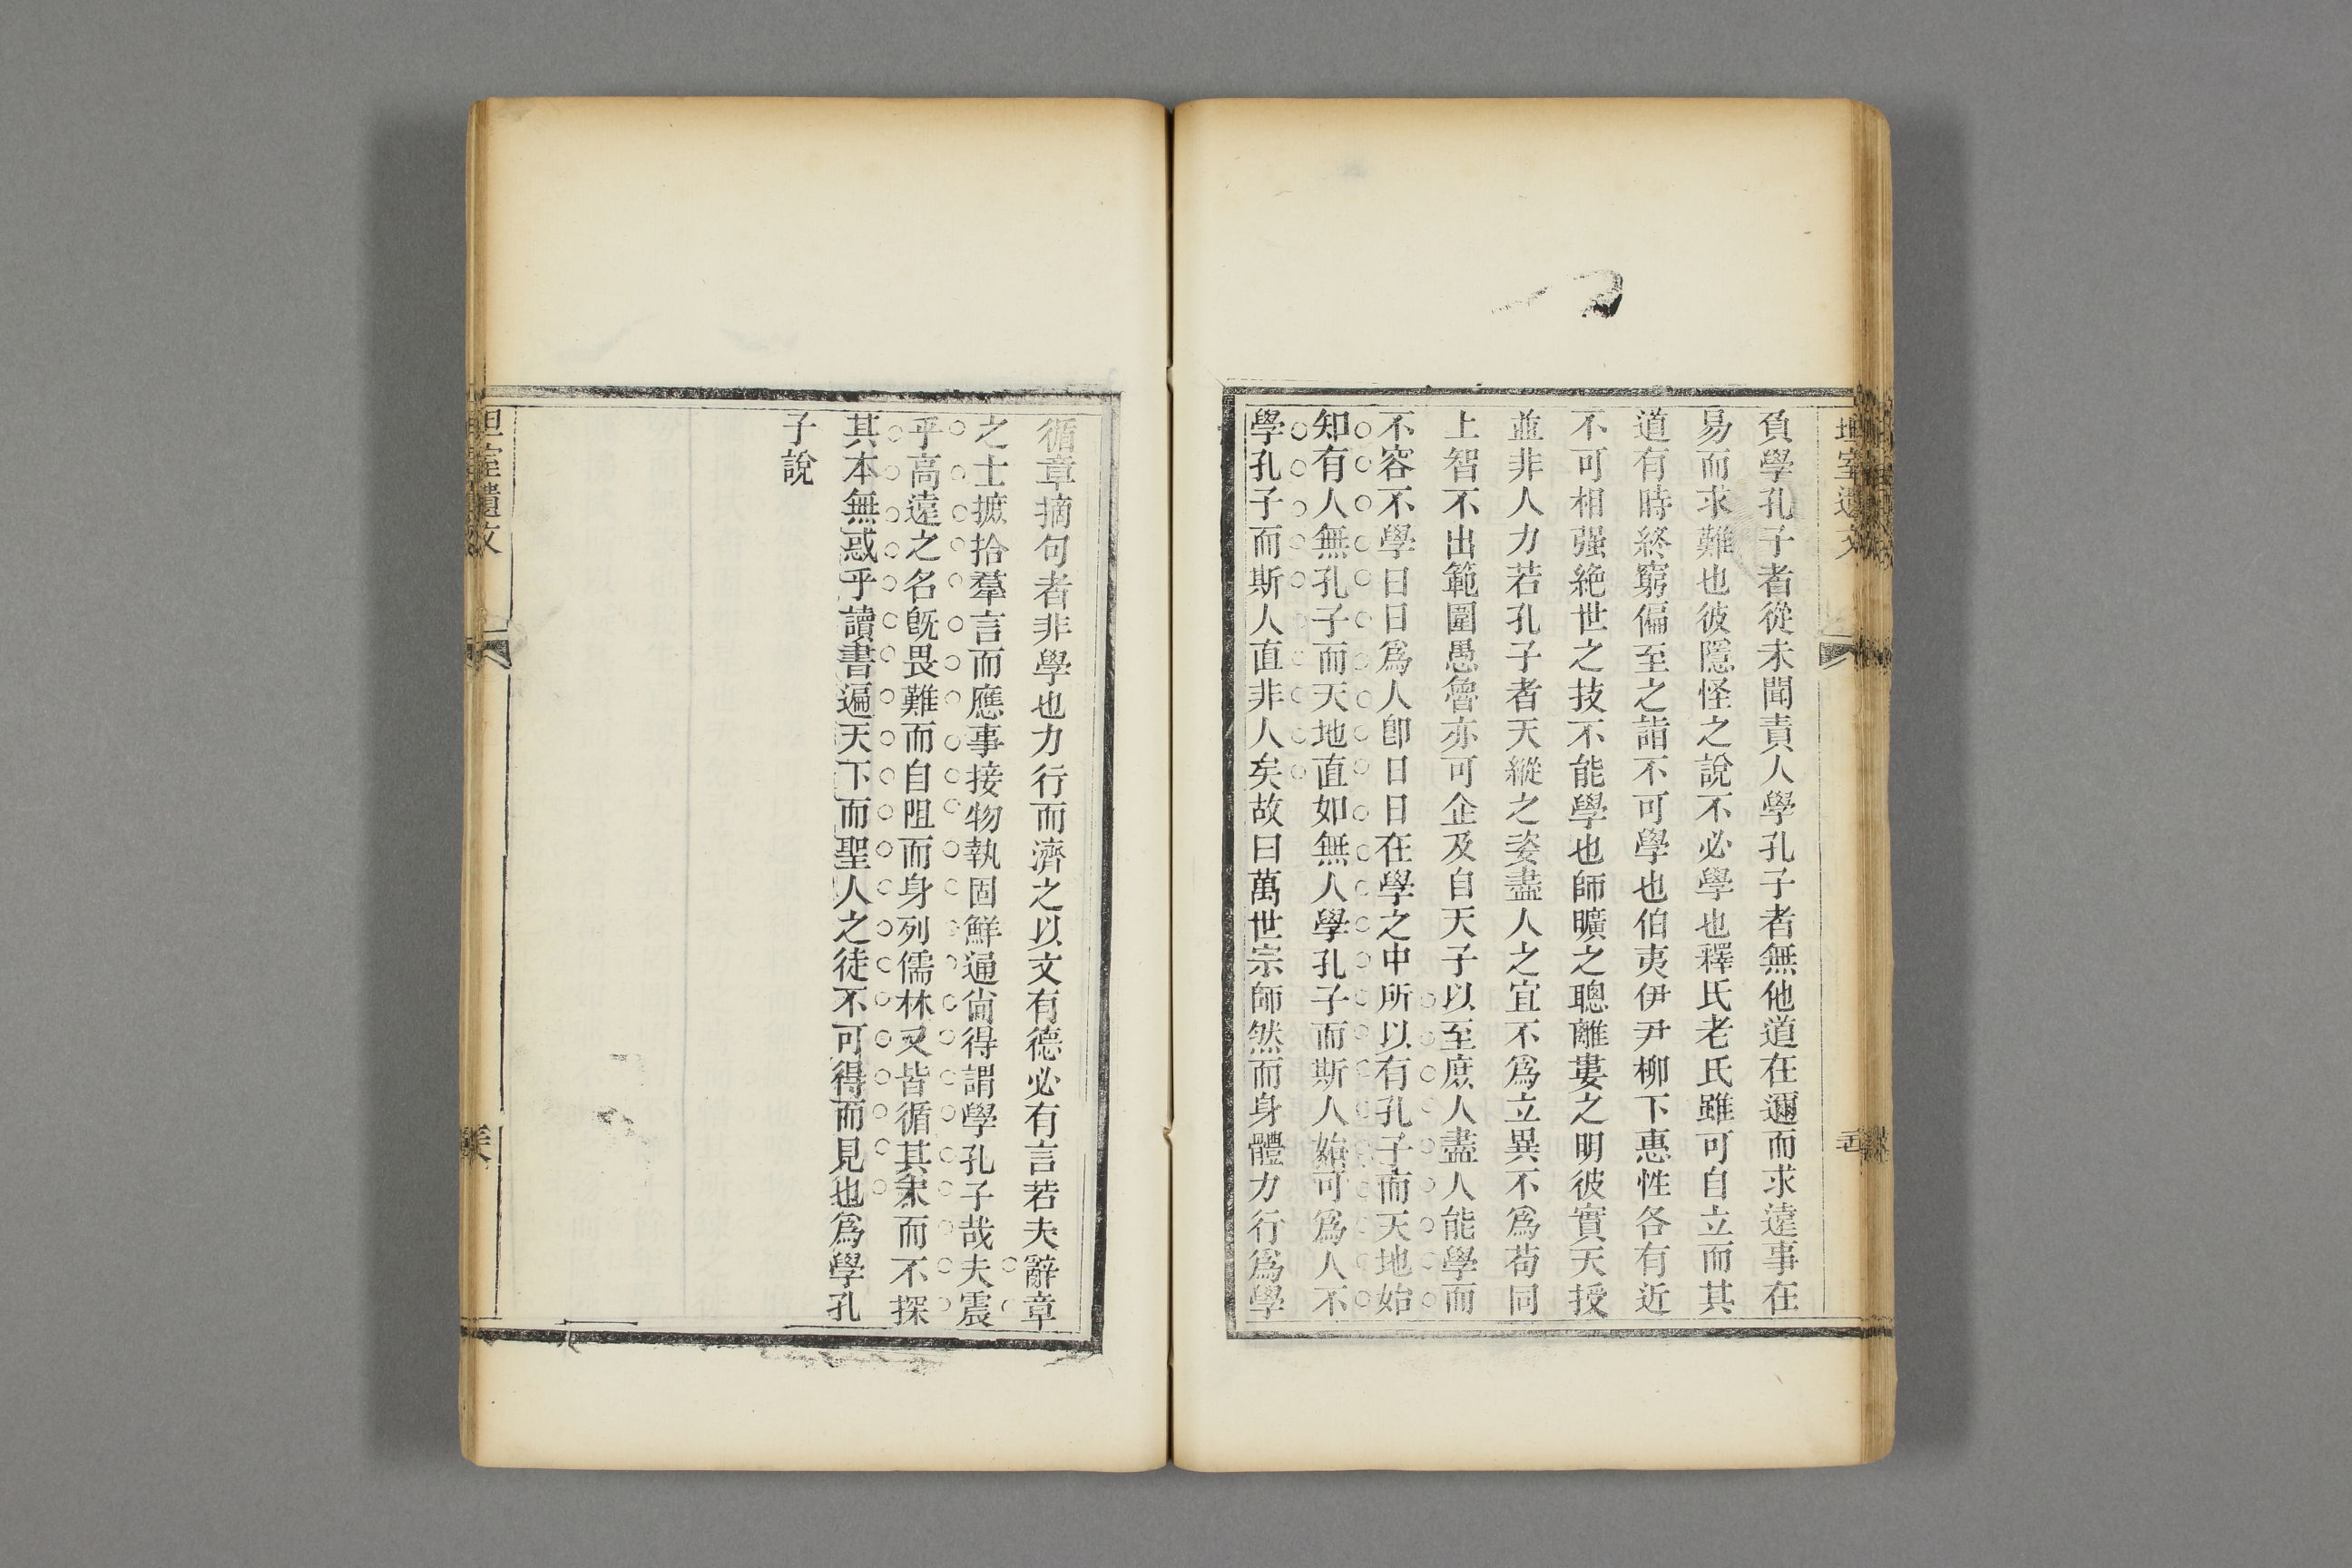 坦室遺文
負學孔子者從未聞責人學孔子者無他道在邇而求遠事在
易而求難也彼隱怪之說不必學也釋氏老氏雖可自立而其
道有時終窮偏至之詣不可學也伯夷伊尹柳下惠性各有近
不可相强絶世之技不能學也師曠之聰離婁之明彼實天授
並非人力若孔子者天縱之姿盡人之宜不爲立異不爲苟同
上智不出範圍愚魯亦可企及自天子以至庶人盡人能學而
不容不學日日爲人卽日日在學之中所以有孔子而天地始
知有人無孔子而天地直如無人學孔子而斯人始可爲人不
學孔子而斯人直非人矣故曰萬世宗師然而身體力行爲學
循章摘句者非學也力行而濟之以文有德必有言若夫辭章
之士摭拾羣言而應事接物執固鮮通尙得謂學孔子哉夫震
乎高遠之名旣畏難而自阻而身列儒林又皆循其末而不探
其本無惑乎讀書遍天下而聖人之徒不可得而見也爲學孔
子說
坦室遺文